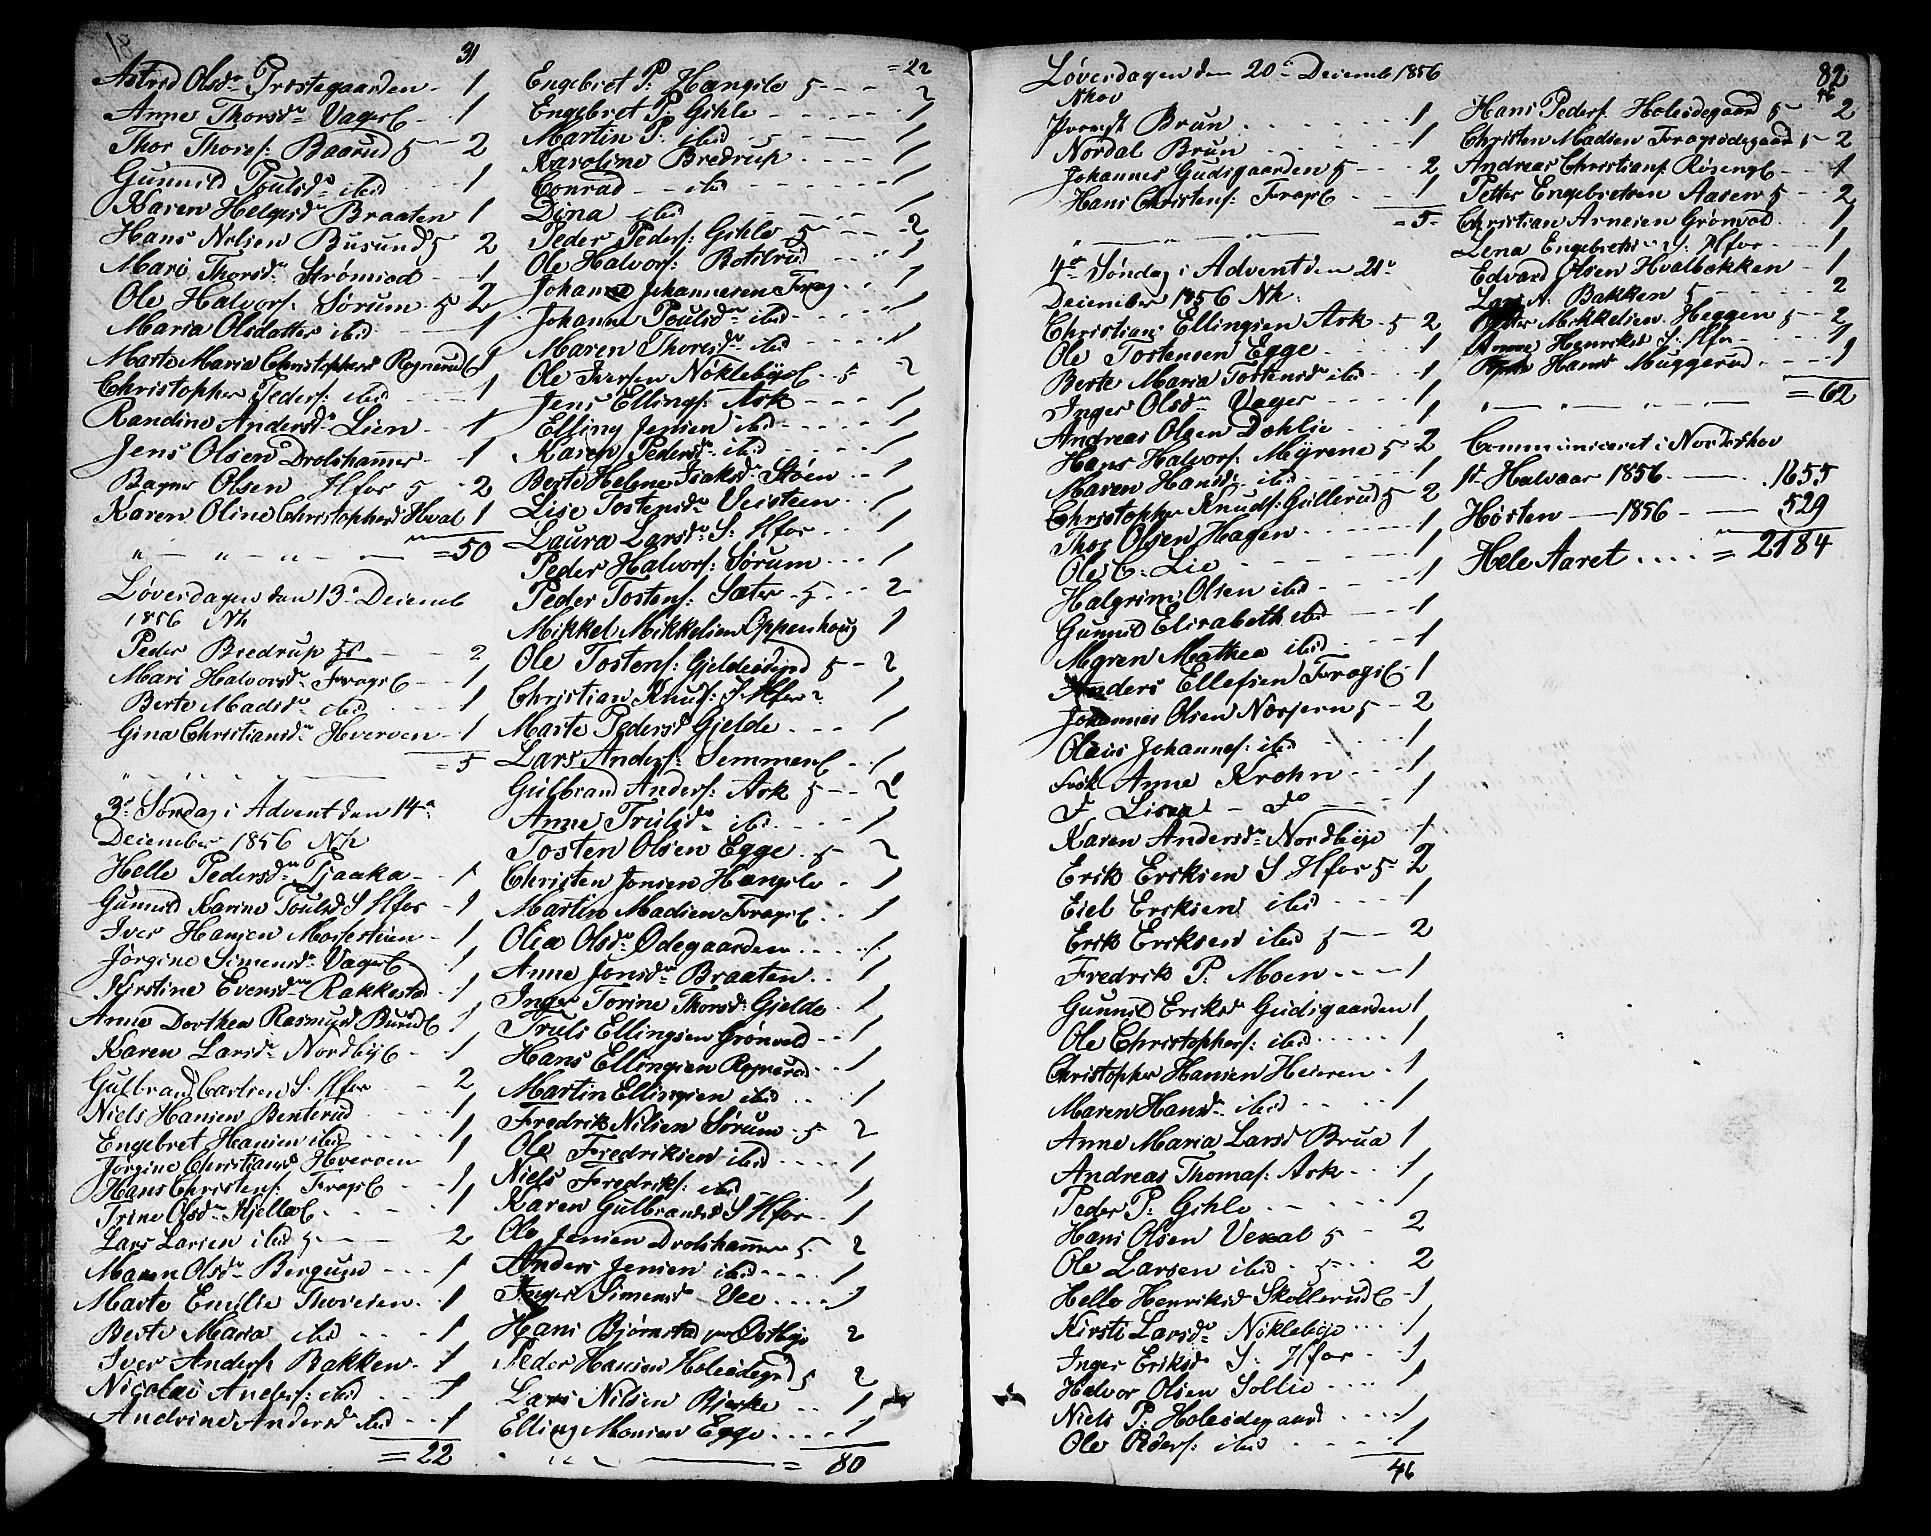 31
Astrid Olsd. Præstegaarden - 1
Anne Thorsd. Vager - 1
Thor Thores: Baarud 5 - 2
Gunnild Poulsd. ibid - 1
Karen Helgesd. Braaten 1
Hans Nilsen Busund 5 2
Mari Thorsd. Strømsod - 1
Ole Halvors: Sørum 5 2
Maria Olsdatter ibid - 1
Marte Maria Christophersd Rognerud 1
Christopher Peders: ibid - 1
Randine Andersd. Lien - 1
Jens Olsen Drolshammer - 1
Olsen Hfos 5 - 2
Karen Oline Christophersd Hval 1
= 50
Løverdagen den 13. Decemb
1856 Nh
Peder Bredrup 5 - 2
Mari Halvorsd. Fragst - 1
Berte Madsd. ibid - 1
Gina Christiansd. Hverven - 1
= 5
3. Søndag i Advent den 14.
December 1856 Nh
Helle Pedersd. Tjaaka - 1
Gunnild Karine Poulsd S Hfos - 1
Iver Hansen Mosestuen - 1
Jørgine Simensd. Vager - 1
Kirstine Eversd. Rakkestad - 1
Anne Dorthea Rasmusd 1
Karen Larsd. Nordby - 1
Gulbrand Carlsen S. Hfos - 2
Niels Hansen Benterud - 1
Engebret Hansen ibid - 1
Jørgine Christiansd Hverven 1
Hans Christens: Fragst - 1
Trine Olsd. Hjelle - 1
Lars Larsen ibid 5 - 2
Maren Olsd. Bergsund - 1
Marte Emilie Thoresen - 1
Berte Maria ibid - 1
Iver Anders: Bakken - 1
Nicolai Anders: ibid - 1
Andrine Andersd ibid - 1
= 22
= 22
Engebret P: Hangsle 5 - 2
Engebret P: Gihle - 1
Martin P: ibid - 1
Karoline Bredrup - 1
Conrad - ibid - 1
Dina ibid - 1
Peder Peders: Gihle 5 - 2
Ole Halvors: Botilrud - 1
Johannes Johannesen Frog - 1
Johanne Poulsd. ibid - 1
Maren Thoresd. ibid - 1
Ole Iversen Nøkleby - 5 2
Jens Ellings: Ask - 1
Elling Jensen ibid - 1
Karen Pedersd. ibid - 1
Berte Helene Isaksd. Støen - 1
Lise Tostensd. Veisteen - 1
Laura Larsd. S: Hfos - 1
Peder Halvors: Sørum - 1
Peder Tostens: Sæter - 5 - 2
Mikkel Mikkelsen Oppenhoug 1
Ole Tostens: 5 - 2
Christian Knuds: S Hfos - 1
Marte Pedersd Gjelde - 1
Lars Anders: Semmen - 1
Gulbrand Anders: Ask 5 - 2
Anne Trulsd. ibid - 1
Tosten Olsen Egge - 5 2
Christen Jonsen Hangsle - 1
Martin Madsen Fragst - 1
Olea Olsd. Ødegaarden - 1
Anne Jonsd. Braaten - 1
Inger Torine Thorsd. Gjelde - 1
Truls Ellingsen Grønvold - 1
Hans Ellingsen Rognerud - 1
Martin Ellingsen ibid - 1
Fredrik Nilsen Sørum - 5 2
Ole Fredriksen ibid - 1
Niels Fredriks: ibid - 1
Karen Gulbrandsd S Hfos - 1
Ole Jensen Drolshammer 5 - 2
Anders Jensen ibid - 1
Inger Simensd Vee - 1
Hans Bjørnstad Østbye 2
Peder Hansen Holesdegrd 5 2
Lars Nilsen Bjerke - 1
Elling Monsen Egge - 1
= 80
82
Løverdagen den 20. Decemb 1856
Nhov
Provst Brun - 1
Nordal Brun - 1
Johannes Gudsgaarden 5 - 2
Hans Christens: Fragst - 1
= 5
4. Søndag i Advent den 21.
December 1856 Nh:
Christian Ellingsen Ask - 5 2
Ole Tostensen Egge - 1
Berte Maria Tostensd ibid - 1
Inger Olsd. Vager - 1
Andreas Olsen Dohlie - 1
Hans Halvors: Myrene 5 - 2
Maren Hansd. ibid - 1
Christopher Knuds: Gullerud 5 - 2
Thor Olsen Hagen - 1
Ole C: Lie - 1
Halgrim Olsen ibid - 1
Gunnild Elisabeth ibid - 1
Maren Mathea ibid - 1
Anders Ellefsen Fragst - 1
Johannes Olsen Nærsern 5 - 2
Olaus Johannes: ibid - 1
Frøk Anne Krohn - 1
F Lisen - Do - 1
Karen Andersd. Nordbye - 1
Erik Eriksen S Hfos 5 - 2
Eiel Eriksen ibid - 1
Erik Eriksen ibid 5 - 2
Fredrik P: Moen - 1
Gunnild Eriksd Gudsgaarden 1
Ole Christophers: ibid - 1
Christopher Hansen Heieren - 1
Maren Hansd. ibid - 1
Anne Maria Larsd Brua 1
Andreas Thomas: Ask - 1
Peder P: Gihle - 1
Hans Olsen Vexal 5 - 2
Ole Larsen ibid - 5 - 2
Helle Henriksd Skollerud - 1
Kirsti Larsd. Nøklebye - 1
Inger Eriksd S: Hfos - 1
Halvor Olsen Sollie - 1
Niels P: Holesdegaard - 1
Ole Peders: ibid - 1
46
46
Hans Peders. Holesdegaard 5 - 2
Christen Madsen Fragsødegaard 5 - 2
Andreas Christians: Røseng - 1
Petter Engebretsen Aasen 5 2
Christian Arnesen Grønvold - 1
Lena Engebretsd S: Hfos - 1
Edvard Olsen Hvalbakken - 1
Lars N. Bakken 5 - 2
Petter Mikkelsen Heggen 5 - 2
Anne Henriksd S: Hfos - 1
Hansd Muggerud - 1
= 62
Communiceret i Norderhov
1st Halvaar 1856 - 1655
Høsten - 1856 - 529
Hele Aaret .... = 2184